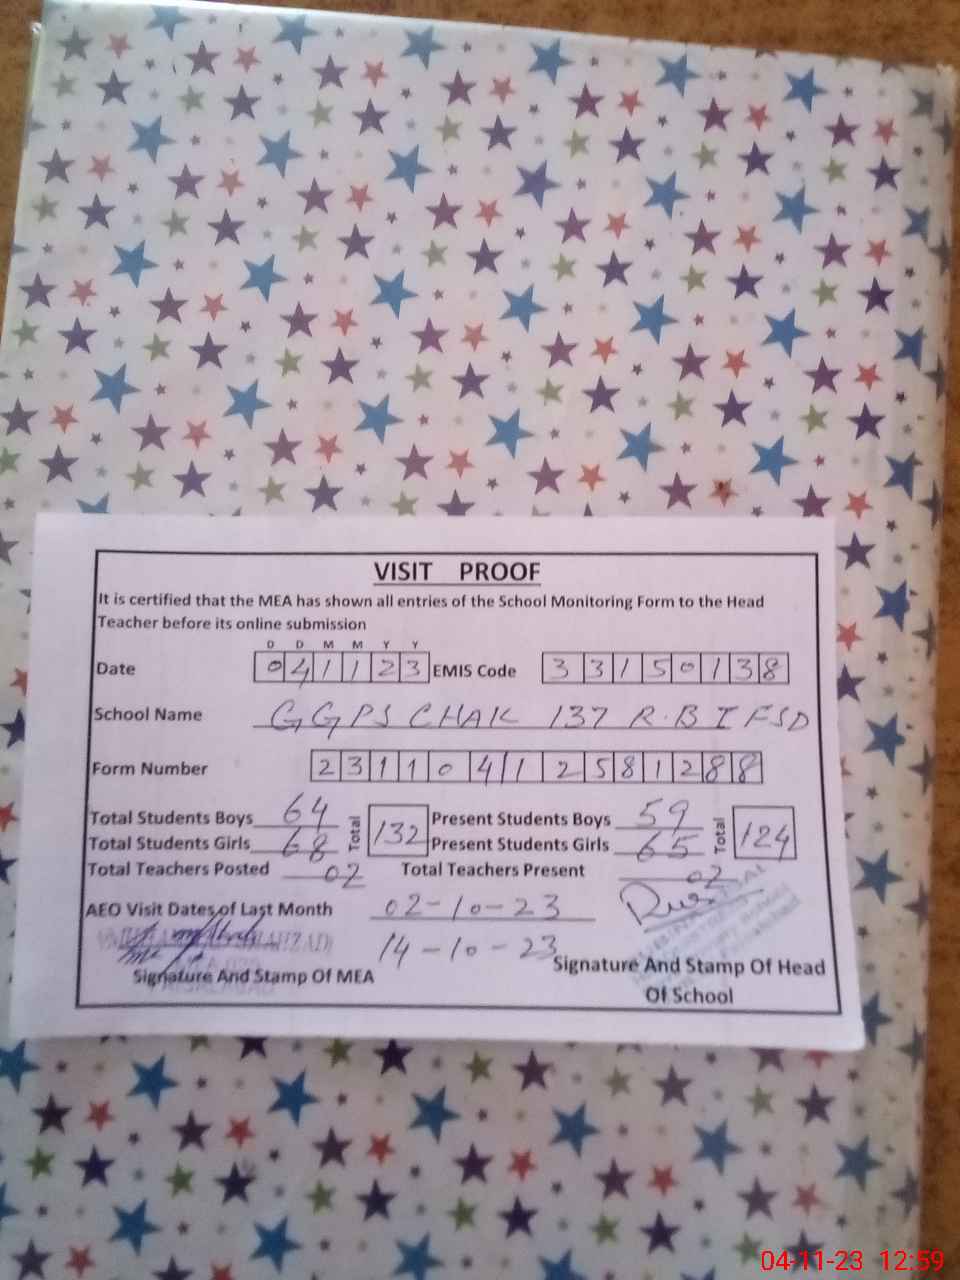 VISIT PROOF
It is certified that the MEA has shown all entries of the School Monitoring Form to the Head
Teacher before its online submission
D D M M Y Y
Date 0 4 1 1 2 3 EMIS Code 3 3 1 5 0 1 3 8
School Name GGPS CHAK 137 R.B I FSD
Form Number 2 3 1 1 0 4 1 2 5 8 1 2 8 8
Total Students Boys 64 Total 132 Present Students Boys 59 Total 124
Total Students Girls 68 Present Students Girls 65
Total Teachers Posted 02 Total Teachers Present 02
AEO Visit Dates of Last Month 02-10-23
14-10-23
Signature And Stamp Of MEA Signature And Stamp Of Head
Of School
04-11-23 12:59